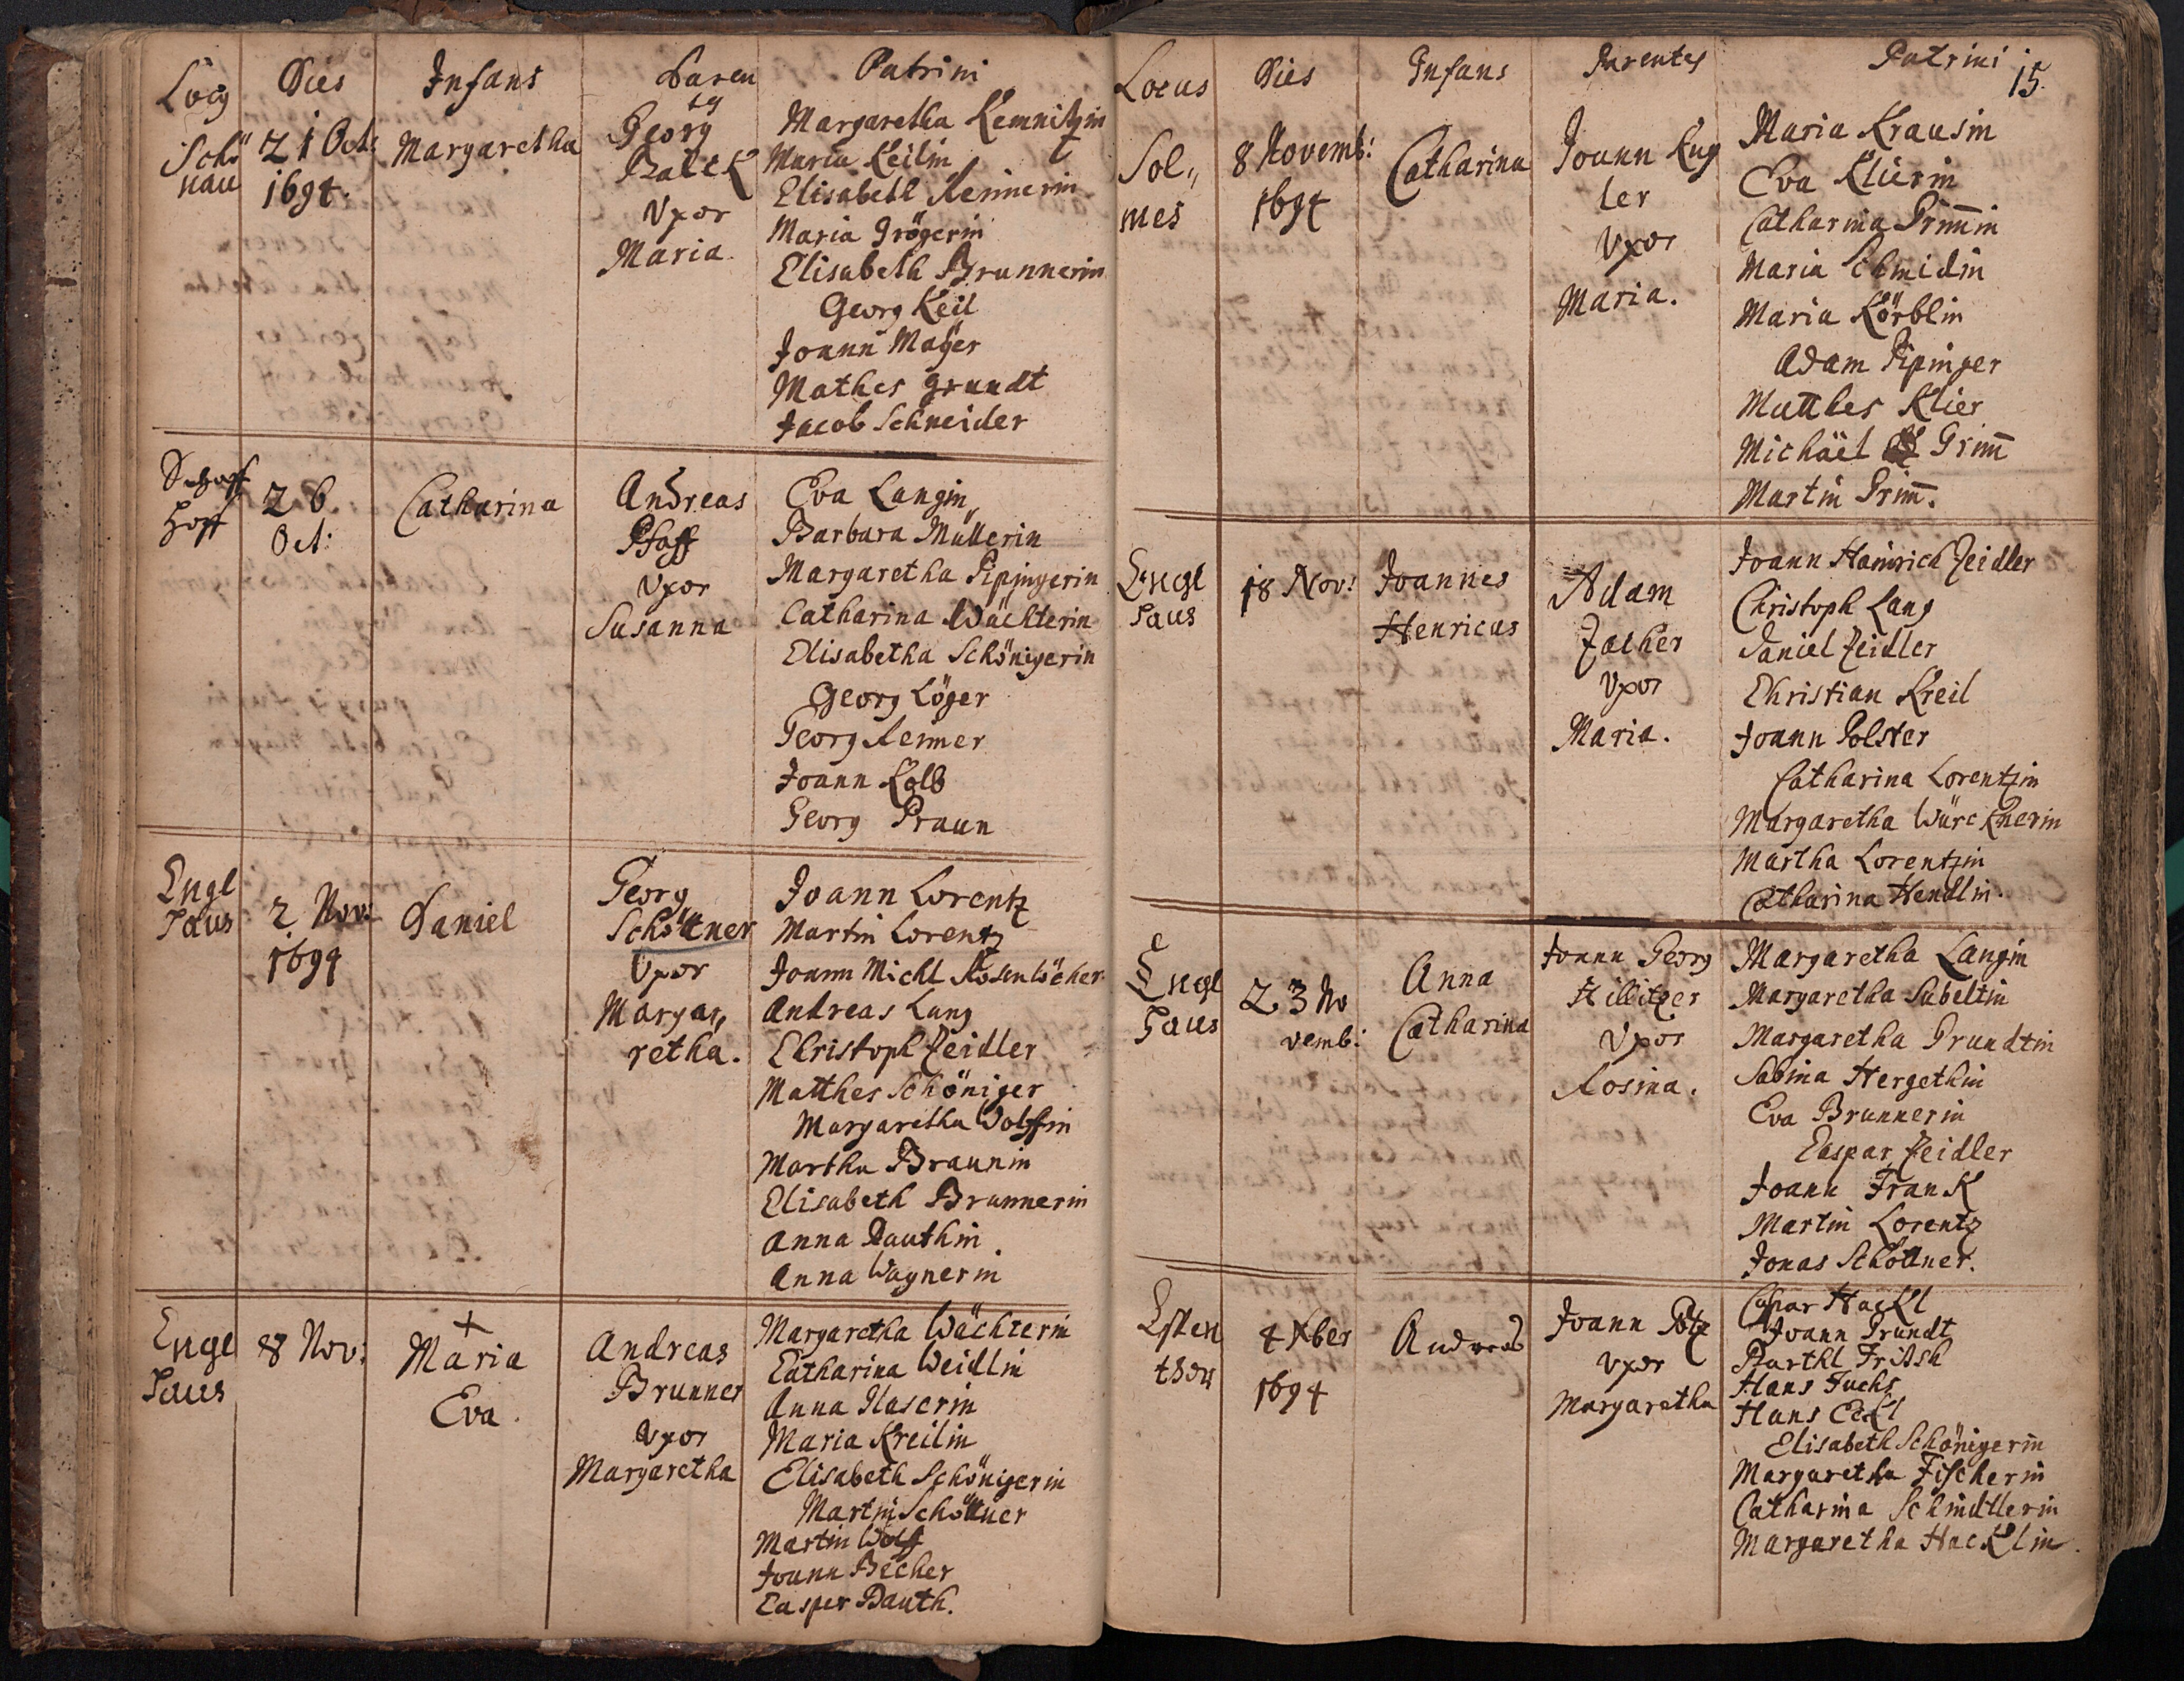 Locus
Dies
Infans
Paren
tes
Patrini
Schö
nau
21 Oct:
1694.
Margaretha
Georg
Vxor
Maria.
Margaretha Kemnitzin
Maria Keilin
Elisabeth Rennerin
Maria Grögerin
Elisabeth Brunnerin
Georg Keil
Joann Mayer
Mathes Grundt
Jacob Schneider
Schaff
Hoff
26
Oct:
Catharina
Andreas
Pfaff
Vxor
Susanna
Eva Langin
Barbara Müllerin
Margaretha Pipingerin
Catharina Wächterin
Elisabetha Schönigerin
Georg Löger
Georg Renner
Joann Kolb
Georg Praun
Engl
Haus
2 Nov:
1694
Daniel
Georg
Schöttner
Vxor
Marga,,
retha.
Joann Lorentz
Martin Lorentz
Joann Michl Rosenlöcher
Andreas Lang
Christoph Zeidler
Matthes Schöniger
Margaretha Wolffin
Martha Braunin
Elisabeth Brunnerin
Anna Bauthin
Anna Wagnerin
Engl
Haus
8 Nov:
+
Maria
Eva.
Andreas
Brunner
Vxor
Margaretha
Margaretha Wächterin
Catharina Weidlin
Anna Haserin
Maria Kreilin
Elisabeth Schönigerin
Martin Schöttner
Martin Wolff
Joann Becher
Casper Bauth.
Locus
Dies
Infans
Parentes
Patrini
15.
Sol,,
mes
8 Novemb:
1694
Catharina
Joann Kug
ler
Vxor
Maria.
Maria Krausin
Eva Klierin
Catharina Grim̅in
Maria Schmidin
Maria Körblin
Adam Pipinger
Matthes Klier
Michäel Grim̅
Martin Grim̅.
Engl
Haus
18 Nov:
Joannes
Henricus
Adam
Zacher
Vxor
Maria.
Joann Hainrich Zeidler
Christoph Lang
Daniel Zeidler
Christian Kreil
Joann Polster
Catharina Lorentzin
Margaretha Würcknerin
Martha Lorentzin
Catharina Hendlin.
Engl
Haus
23 No
vemb:
Anna
Catharina
Joann Georg
Hillitzer
Vxor
Rosina.
Margaretha Langin
Margaretha Sabeltin
Margaretha Grundtin
Sabina Hergethin
Eva Brunnerin
Caspar Zeidler
Joann Frank
Martin Lorentz
Jonas Schöttner.
Espen
thor
4 Xber
1694
Andreas
Joann Götz
Vxor
Margaretha
Caspar Hackl
Joann Grundt
Barthl Fritsch
Hans Fuchs
Hans Eckl
Elisabeth Schönigerin
Margaretha Fischerin
Catharina Schindtlerin
Margaretha Hacklin.